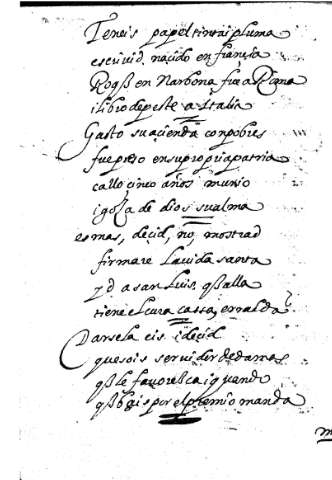 Teneis papel tintai pluma
escriuid. nacido en françia
Roqß en Narbona, fue a Roma
i libro de peste a Italia
Gasto su açienda con pobres
fue preso en su propria patria
callo, çinco años murio
i goza de dios su alma
es mas, deçid, no, mostrad
firmare la vida santa
y d a san Luis, qß alla
tiene el cura
Darsela eis. i deçid
que sois seruidor de damas
qß le fauoresca i quando
qß por el premio manda